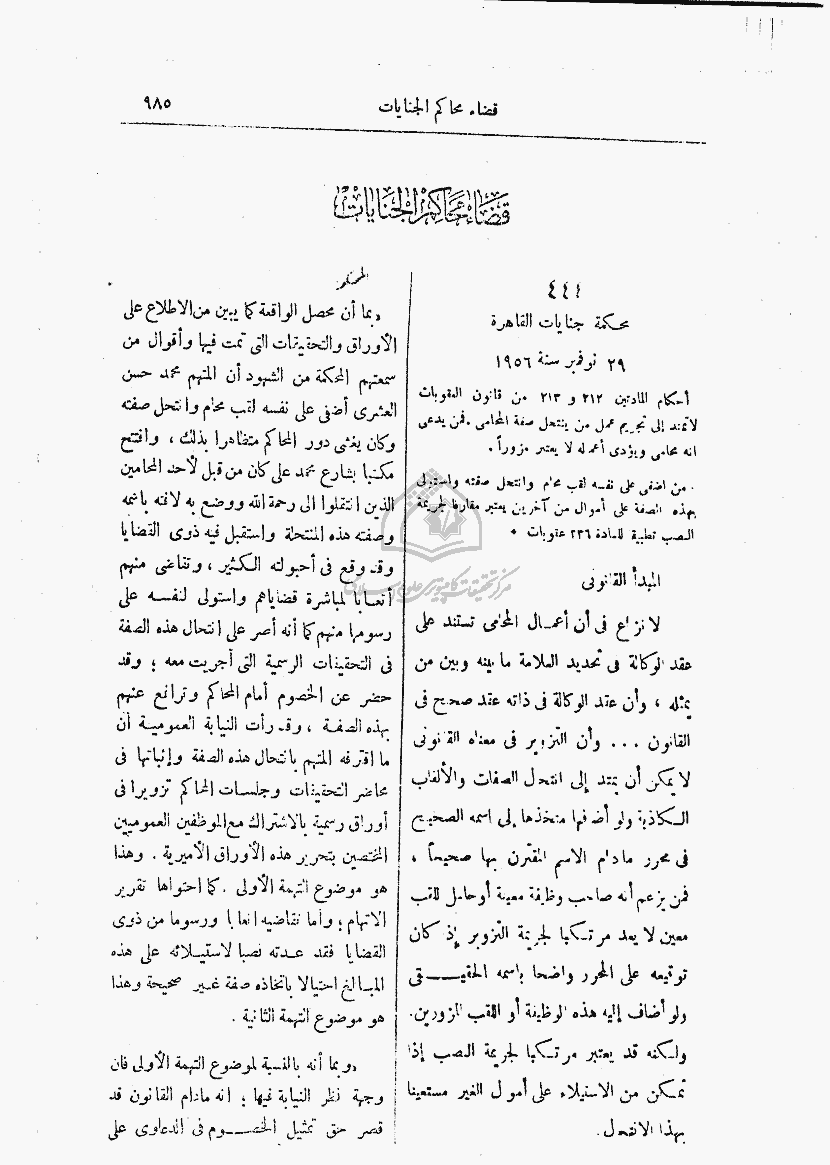 قضاء محاكم الجنايات
٩٨٥
قضاء محاكم الجنايات
٤٤١
محكمة جنايات القاهرة
٢٩ نوفبر سنة ١٩٥٦
أحكام المادتين ٢١٢ و ٢١٣ من قانون العقوبات
لاتمتد إلى تجريم عمل من ينتحل صفة المحامى . فمن يدعى
انه محامى ويؤدى أعماله لا يعتبر مزوراً .
. من اضفى على نفسه لقب محام وانتحل صفته واستولى
بهذه الصفة على أموال من آخرين يعتبر مقارفا لجريمة
النصب تطبيقا للمادة ٢٣٦ عقوبات .
المبدأ القانونى
لا نزاع فى أن أعمال المحامى تستند على
عقد الوكالة فى تحديد العلامة ما بينه وبين من
يمثله ، وأن عقد الوكالة فى ذاته عقد صحيح فى
القانون ... وأن التزوير فى معناه القانونى
لا يمكن أن يمتد إلى انتحل الصفات والألقاب
الكاذبة ولو أضافها متخذها إلى اسمه الصحيح
فى محرر مادام الاسم المقترن بها صحيحاً ،
فمن يزعم أنه صاحب وظيفة معينة أو حامل للقب
معين لا يعد مرتكبا لجريمة التزوير إذ كان
توقيعه على المحرر واضحا باسمه الحقيقى
ولو أضاف إليه هذه الوظيفة أو اللقب المزورين .
ولكنه قد يعتبر مرتكبا لجريمة النصب إذا
تمكن من الاستيلاء على أمول الغير مستعينا
بهذا الانتحل .
المحكمة
« بما أن محصل الواقعة كما يبين من الاطلاع على
الأوراق والتحقيقات التى تمت فيها وأقوال من
سمعتهم المحكمة من الشهود أن المتهم محمد حسن
العشرى أضفى على نفسه لقب محام وانتحل صفته
وكان يغشى دور المحاكم متظاهرا بذلك ، وافتتح
مكتبا بشارع محمد على كان من قبل لأحد المحامين
الذين انتقلوا الى رحمة الله ووضع به لافتة باسمه
وصفته هذه المنتحلة واستقبل فيه ذوى القضايا
وقد وقع فى أحبولته الكثير ، وتقاضى منهم
أتعابا لمباشرة قضاياهم واستولى لنفسه على
رسومها منهم كما أنه أصر على انتحال هذه الصفة
فى التحقيقات الرسمية التى أجريت معه ؛ وقد
حضر عن الخصوم أمام المحاكم وترافع عنهم
بهذه الصفة ، وقد رأت النيابة العمومية أن
ما اقترفه المتهم بانتحال هذه الصفة وإثباتها فى
محاضر التحقيقات وجلسات المحاكم تزويرا فى
أوراق رسمية بالاشتراك مع الموظفين العموميين
المختصين بتحرير هذه الأوراق الأميرية . وهذا
هو موضوع التهمة الأولى . كما احتواها تقرير
الاتهام ؛ وأما تقاضيه اتعابا ورسوما من ذوى
القضايا فقد عدته نصبا لاستيلائه على هذه
المبالغ احتيالا باتخاذه صفة غير صحيحة وهذا
هو موضوع التهمة الثانية .
« وبما أنه بالنسبة لموضوع التهمة الأولى فان
وجهة نظر النيابة فيها ؛ انه مادام القانون قد
قصر حق تمثيل الخصوم فى الدعاوى على